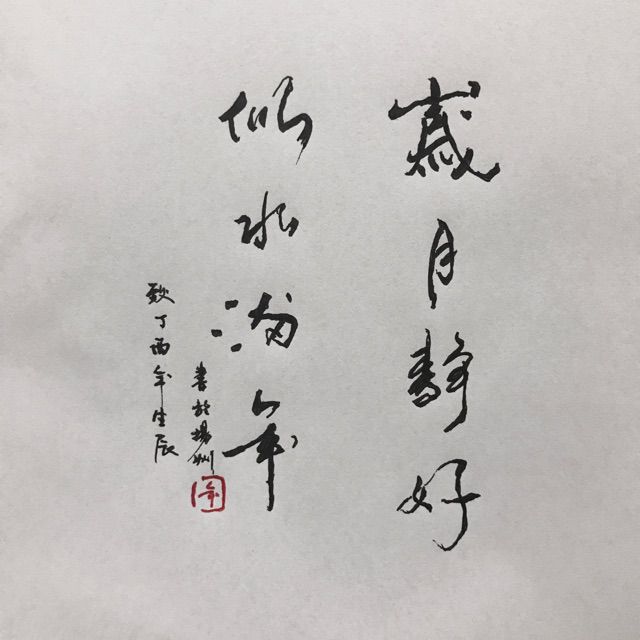 歲月静好
似水流年
書於揚州
致丁酉年生辰